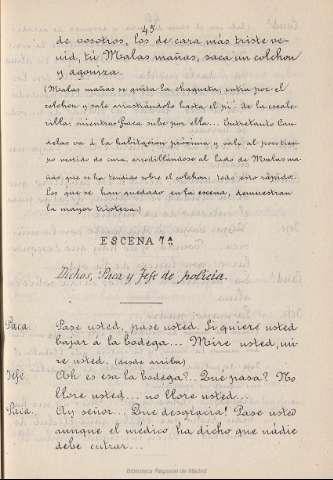 45
de vosotros, los de cara más triste ve-
nid, tú Malas mañas, saca un colchon
y agoniza.
(Malas mañas se quita la chaqueta, entra por el
colchon y sale arrastrándolo hasta el pié de la escale-
rilla: mientras Paca sube por ella... Entretanto Can-
delas va á la habitacion próxima y sale al poco tiem-
po vestido de cura, arrodillándose al lado de Malas ma-
ñas que se ha tendido sobre el colchon: todo esto rápido.
Los que se han quedado en la escena, demuestran
la mayor tristeza.)
ESCENA 7ª
Dichos, Paca y Jefe de policía.
Paca. Pase usted, pase usted. Si quiere usted
bajar á la bodega... Mire usted, mi-
re usted. (desde arriba)
Jefe. Ah es esa la bodega?.. Qué pasa? No
llore usted... no llore usted...
Paca. Ay señor... Que desgracia! Pase usted
aunque el médico ha dicho que nádie
debe entrar...
Biblioteca Regional de Madrid